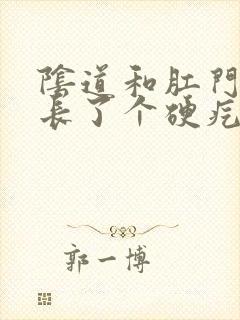 陰道和肛門
長了个硬疙
郭一博